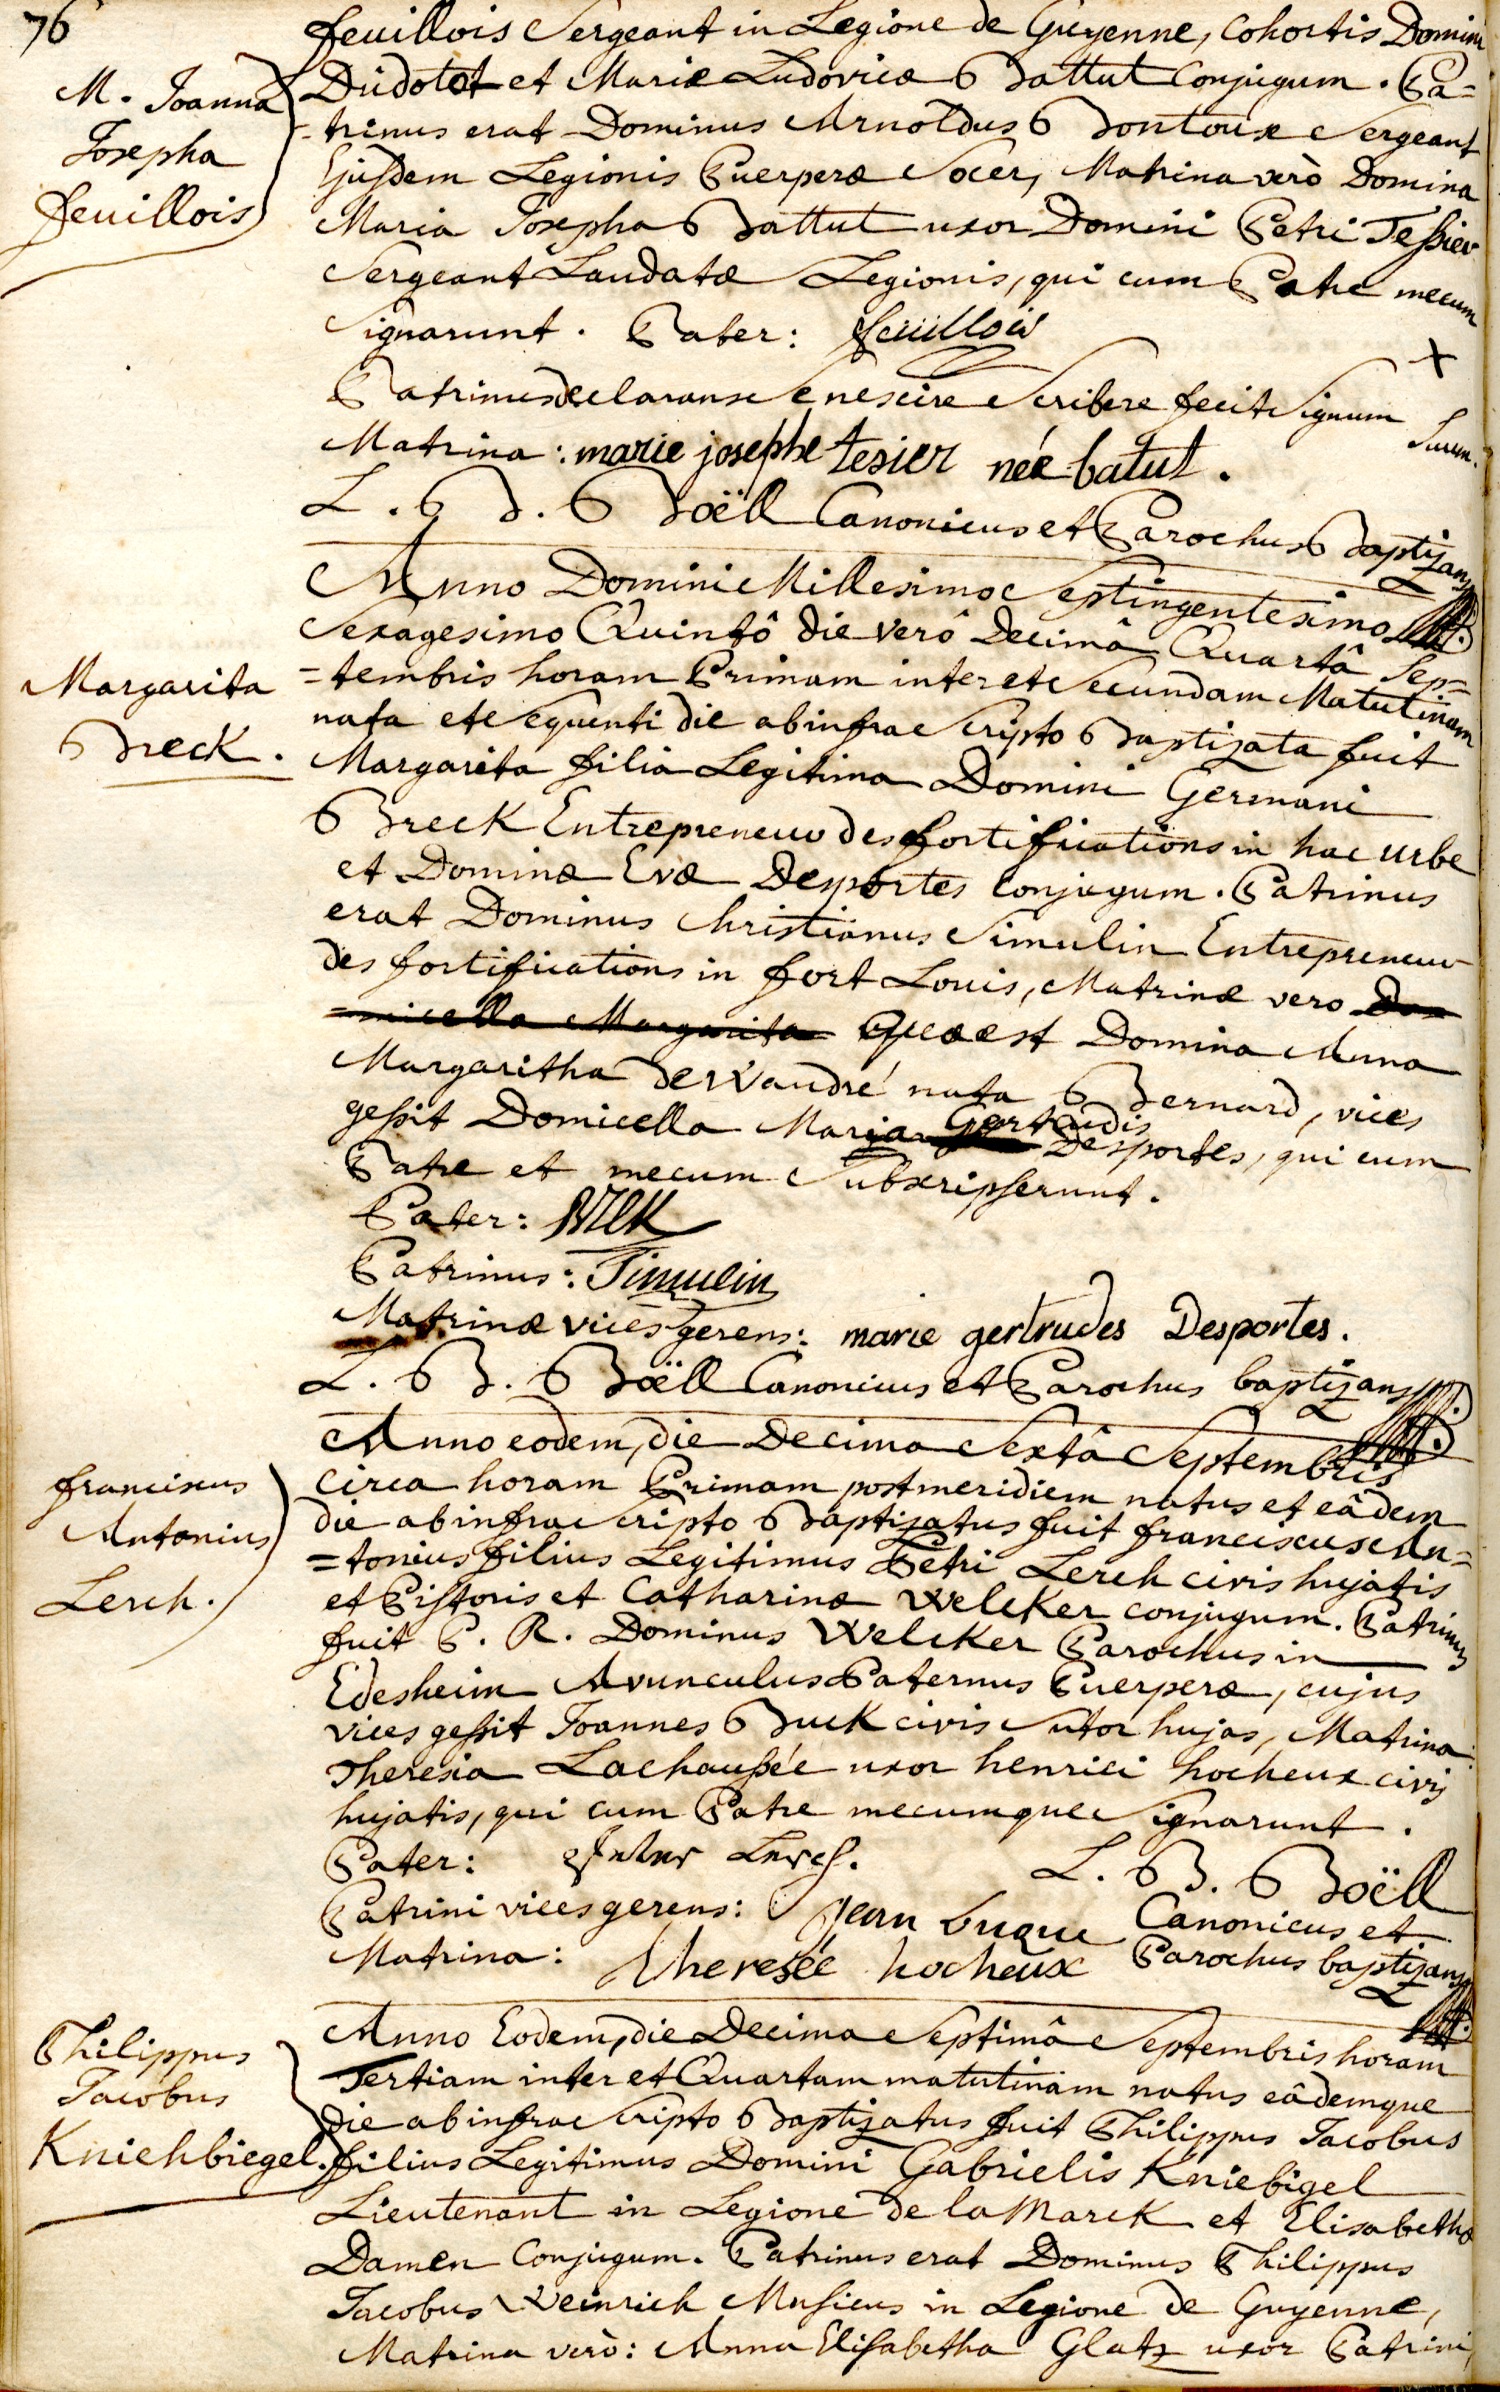 76
feuillois Sergeant in Legione de Guyenne, Cohortis Domini
M. Joanna
Josepha
feuillois
Dudotet et Mariæ Ludovicæ Battut Conjugum. Pa=
=trinus erat Dominus Arnoldus Bontoux Sergeant
Ejusdem Legionis Puerperæ Socer, Matrina verò Domina
Maria Josepha Battut uxor Domini Petri Tessier
Sergeant Laudatæ Legionis, qui cum Patre mecum
signarunt. Pater: feüillois
Patrinus declarans se nescire scribere fecit signum + suum.
Matrina: marie josephe tesier neé batut.
L. B. Boëll Canonicus et Parochus Baptizans
Margarita
Breck.
Anno Domini Millesimo Septingentesimo
Sexagesimo Quintô die verô Decimâ Quartâ Sep=
=tembris horam Primam inter et Secundam Matutinam
nata et Sequenti die ab infra Scripto Baptizata fuit
Margarita filia Legitima Domini Germani
Breck Entrepreneur des fortifications in hac urbe
et Dominæ Evæ Desportes conjugum. Patrinus
erat Dominus Christianus Simulin Entrepreneur
des fortifications in fort Louis, Matrinæ vero Do=
=micella Margarita quæ est Domina Anna
Margaritha de Vaudré nata Bernard, vices
gessit Domicella Maria Gertrudis Desportes, qui cum
Patre et mecum Subscripserunt.
Pater: Breck
Patrinus: Simulin
Matrinæ vices gerens: marie gertrudes Desportes.
L. B. Boëll Canonicus et Parochus baptizans
franciscus
Antonius
Lerch.
Anno eodem, die Decima Sextâ Septembris
circa horam Primam post meridiem natus et eâdem
die ab infra Scripto Baptizatus fuit franciscus An=
=tonius filius Legitimus Petri Lerch civis hujatis
et Pistoris et Catharinæ Welcker conjugum. Patrinus
fuit P. R. Dominus Welcker Parochus in
Edesheim Avunculus Paternus Puerperæ, cujus
vices gessit Joannes Buck civis Sutor hujas, Matrina
Theresia Lachaussée uxor henrici hocheux civis
hujatis, qui cum Patre mecumque Signarunt.
Pater: Peter Lerch.
Patrini vices gerens: Jean buque
Matrina: therese hocheux
L. B. Boëll
Canonicus et
Parochus baptizans
Philippus
Jacobus
Kniehbiegel.
Anno Eodem, die Decima Septimâ Septembris horam
Tertiam inter et Quartam matutinam natus eâdemque
die ab infra Scripto Baptizatus fuit Philippus Jacobus
filius Legitimus Domini Gabrielis Kniebigel
Lieutenant in Legione de la Marck et Elisabethæ
Damen Conjugum. Patrinus erat Dominus Philippus
Jacobus Weinrich Musicus in Legione de Guyenne,
Matrina verò: Anna Elisabetha Glatz uxor Patrini,